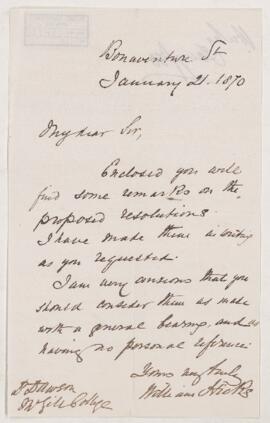 Bonaventure St
January 21. 1870
My dear Sir,
Enclosed you will
find some remarks on the
proposed resolutions.
I have made them in writing
as you requested.
I am very anxious that you
should consider them as made
with a general bearing, and as
having no personal reference.
Yours very truly
William Hickes
Dr Dawson
McGill College